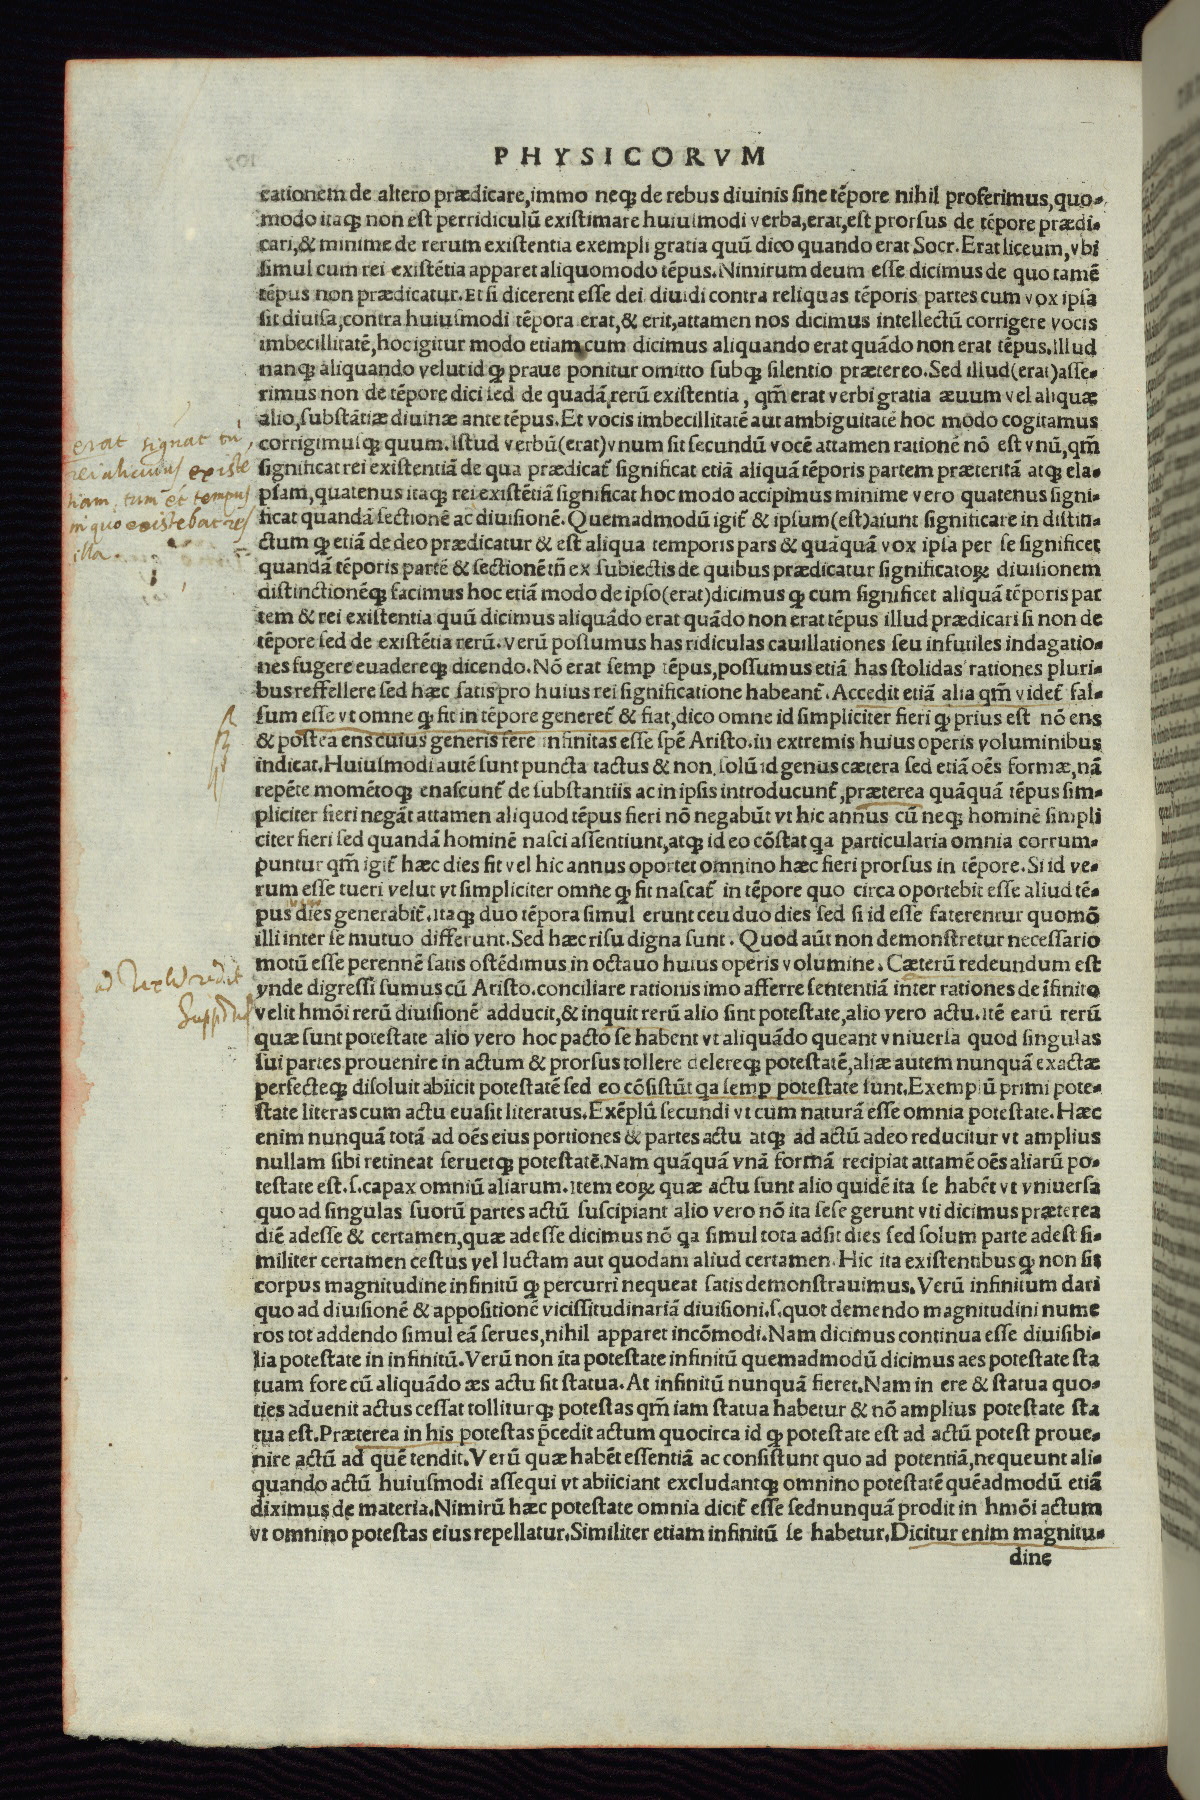 PHYSICORVM
cationem de altero prædicare,immo neqꝫ de rebus diuinis sine tēpore nihil proferimus,quo-
modo itaqꝫ non est perridiculū existimare huiusmodi verba,erat,est prorsus de tēpore prædi-
cari,& minime de rerum existentia exempli gratia quū dico quando erat Socr. Erat liceum,vbi
simul cum rei existētia apparet aliquomodo tēpus. Nimirum deum esse dicimus de quo tamē
tēpus non prædicatur. Et si dicerent esse dei diuidi contra reliquas tēporis partes cum vox ipsa
sit diuisa,contra huiusmodi tēpora erat,& erit,attamen nos dicimus intellectū corrigere vocis
imbecillitatē,hoc igitur modo etiam cum dicimus aliquando erat quādo non erat tēpus. Illud
nanqꝫ aliquando velut id ꝙ praue ponitur omitto subqꝫ silentio prætereo. Sed illud(erat)asse-
rimus non de tēpore dici sed de quadā rerū existentia, qm̄ erat verbi gratia æuum vel aliquæ
alio,substātiæ diuinæ ante tēpus. Et vocis imbecillitatē aut ambiguitatē hoc modo cogitamus
corrigimusqꝫ quum. Istud verbū(erat)vnum sit secundū vocē attamen rationē nō est vnū,qm̄
significat rei existentiā de qua prædicat̄ significat etiā aliquā tēporis partem præteritā atqꝫ ela-
psam,quatenus itaqꝫ rei existētiā significat hoc modo accipimus minime vero quatenus signi-
ficat quandā sectionē ac diuisionē. Quemadmodū igit̄ & ipsum(est)aiunt significare in distin-
ctum ꝙ etiā de deo prædicatur & est aliqua temporis pars & quāquā vox ipsa per se significet
quandā tēporis partē & sectionē tn̄ ex subiectis de quibus prædicatur significatoꝝ diuisionem
distinctionēqꝫ facimus hoc etiā modo de ipso(erat)dicimus ꝙ cum significet aliquā tēporis par
tem & rei existentia quū dicimus aliquādo erat quādo non erat tēpus illud prædicari si non de
tēpore sed de existētia rerū. Verū possumus has ridiculas cauillationes seu infutiles indagatio-
nes fugere euadereqꝫ dicendo. Nō erat semp tēpus,possumus etiā has stolidas rationes pluri-
bus reffellere sed hæc satis pro huius rei significatione habeant̄. Accedit etiā alia qm̄ videt̄ fal-
sum esse vt omne ꝙ fit in tēpore generet̄ & fiat,dico omne id simpliciter fieri ꝙ prius est nō ens
& postea ens cuius generis fere infinitas esse spē Aristo. in extremis huius operis voluminibus
indicat. Huiusmodi autē sunt puncta tactus & non solū id genus cætera sed etiā oēs formæ,nā
repēte momētoqꝫ enascunt̄ de substantiis ac in ipsis introducunt̄,præterea quāquā tēpus sim-
pliciter fieri negāt attamen aliquod tēpus fieri nō negabūt vt hic annus cū neqꝫ hominē simpli
citer fieri sed quandā hominē nasci assentiunt,atqꝫ id eo cōstat qa particularia omnia corrum-
puntur qm̄ igit̄ hæc dies fit vel hic annus oportet omnino hæc fieri prorsus in tēpore. Si id ve-
rum esse tueri velut vt simpliciter omne ꝙ fit nascat̄ in tēpore quo circa oportebit esse aliud tē-
pus dies generabit̄. itaqꝫ duo tēpora simul erunt ceu duo dies sed si id esse faterentur quomō
illi inter se mutuo differunt. Sed hæc risu digna sunt. Quod aūt non demonstretur necessario
motū esse perennē satis ostēdimus in octauo huius operis volumine. Cæterū redeundum est
ynde digressi sumus cū Aristo. conciliare rationis imo afferre sententiā inter rationes de īfinito
velit hmōi rerū diuisionē adducit,& inquit rerū alio sint potestate,alio vero actu. itē earū rerū
quæ sunt potestate alio vero hoc pacto se habent vt aliquādo queant vniuersa quod singulas
sui partes prouenire in actum & prorsus tollere delereqꝫ potestatē,aliæ autem nunquā exactæ
perfecteqꝫ disoluit abiicit potestatē sed eo cōsistūt qa semp potestate sunt. Exemplū primi pote-
state literas cum actu euasit literatus. Exēplū secundi vt cum naturā esse omnia potestate. Hæc
enim nunquā totā ad oēs eius portiones & partes actu atqꝫ ad actū adeo reducitur vt amplius
nullam sibi retineat seruetqꝫ potestatē. Nam quāquā vnā formā recipiat attamē oēs aliarū po-
testate est. s. capax omniū aliarum. item eoꝝ quæ actu sunt alio quidē ita se habēt vt vniuersa
quo ad singulas suorū partes actū suscipiant alio vero nō ita sese gerunt vti dicimus præterea
diē adesse & certamen,quæ adesse dicimus nō qa simul tota adsit dies sed solum parte adest si-
militer certamen cestus vel luctam aut quodam aliud certamen. Hic ita existentibus ꝙ non sit
corpus magnitudine infinitū ꝙ percurri nequeat satis demonstrauimus. Verū infinitum dari
quo ad diuisionē & appositionē vicissitudinariā diuisioni. s. quot demendo magnitudini nume
ros tot addendo simul eā serues,nihil apparet incōmodi. Nam dicimus continua esse diuisibi-
lia potestate in infinitū. Verū non ita potestate infinitū quemadmodū dicimus aes potestate sta
tuam fore cū aliquādo æs actu sit statua. At infinitū nunquā fieret. Nam in ere & statua quo-
ties aduenit actus cessat tolliturqꝫ potestas qm̄ iam statua habetur & nō amplius potestate sta
tua est. Præterea in his potestas p̄cedit actum quocirca id ꝙ potestate est ad actū potest proue-
nire actū ad quē tendit. Verū quæ habēt essentiā ac consistunt quo ad potentiā,nequeunt ali-
quando actū huiusmodi assequi vt abiiciant excludantqꝫ omnino potestatē quēadmodū etiā
diximus de materia. Nimirū hæc potestate omnia dicit̄ esse sed nunquā prodit in hmōi actum
vt omnino potestas eius repellatur. Similiter etiam infinitū se habetur. Dicitur enim magnitu-
dine
erat signat tū
rei alicuius existe
tiam, tum et tempus
in quo existebat res
illa.